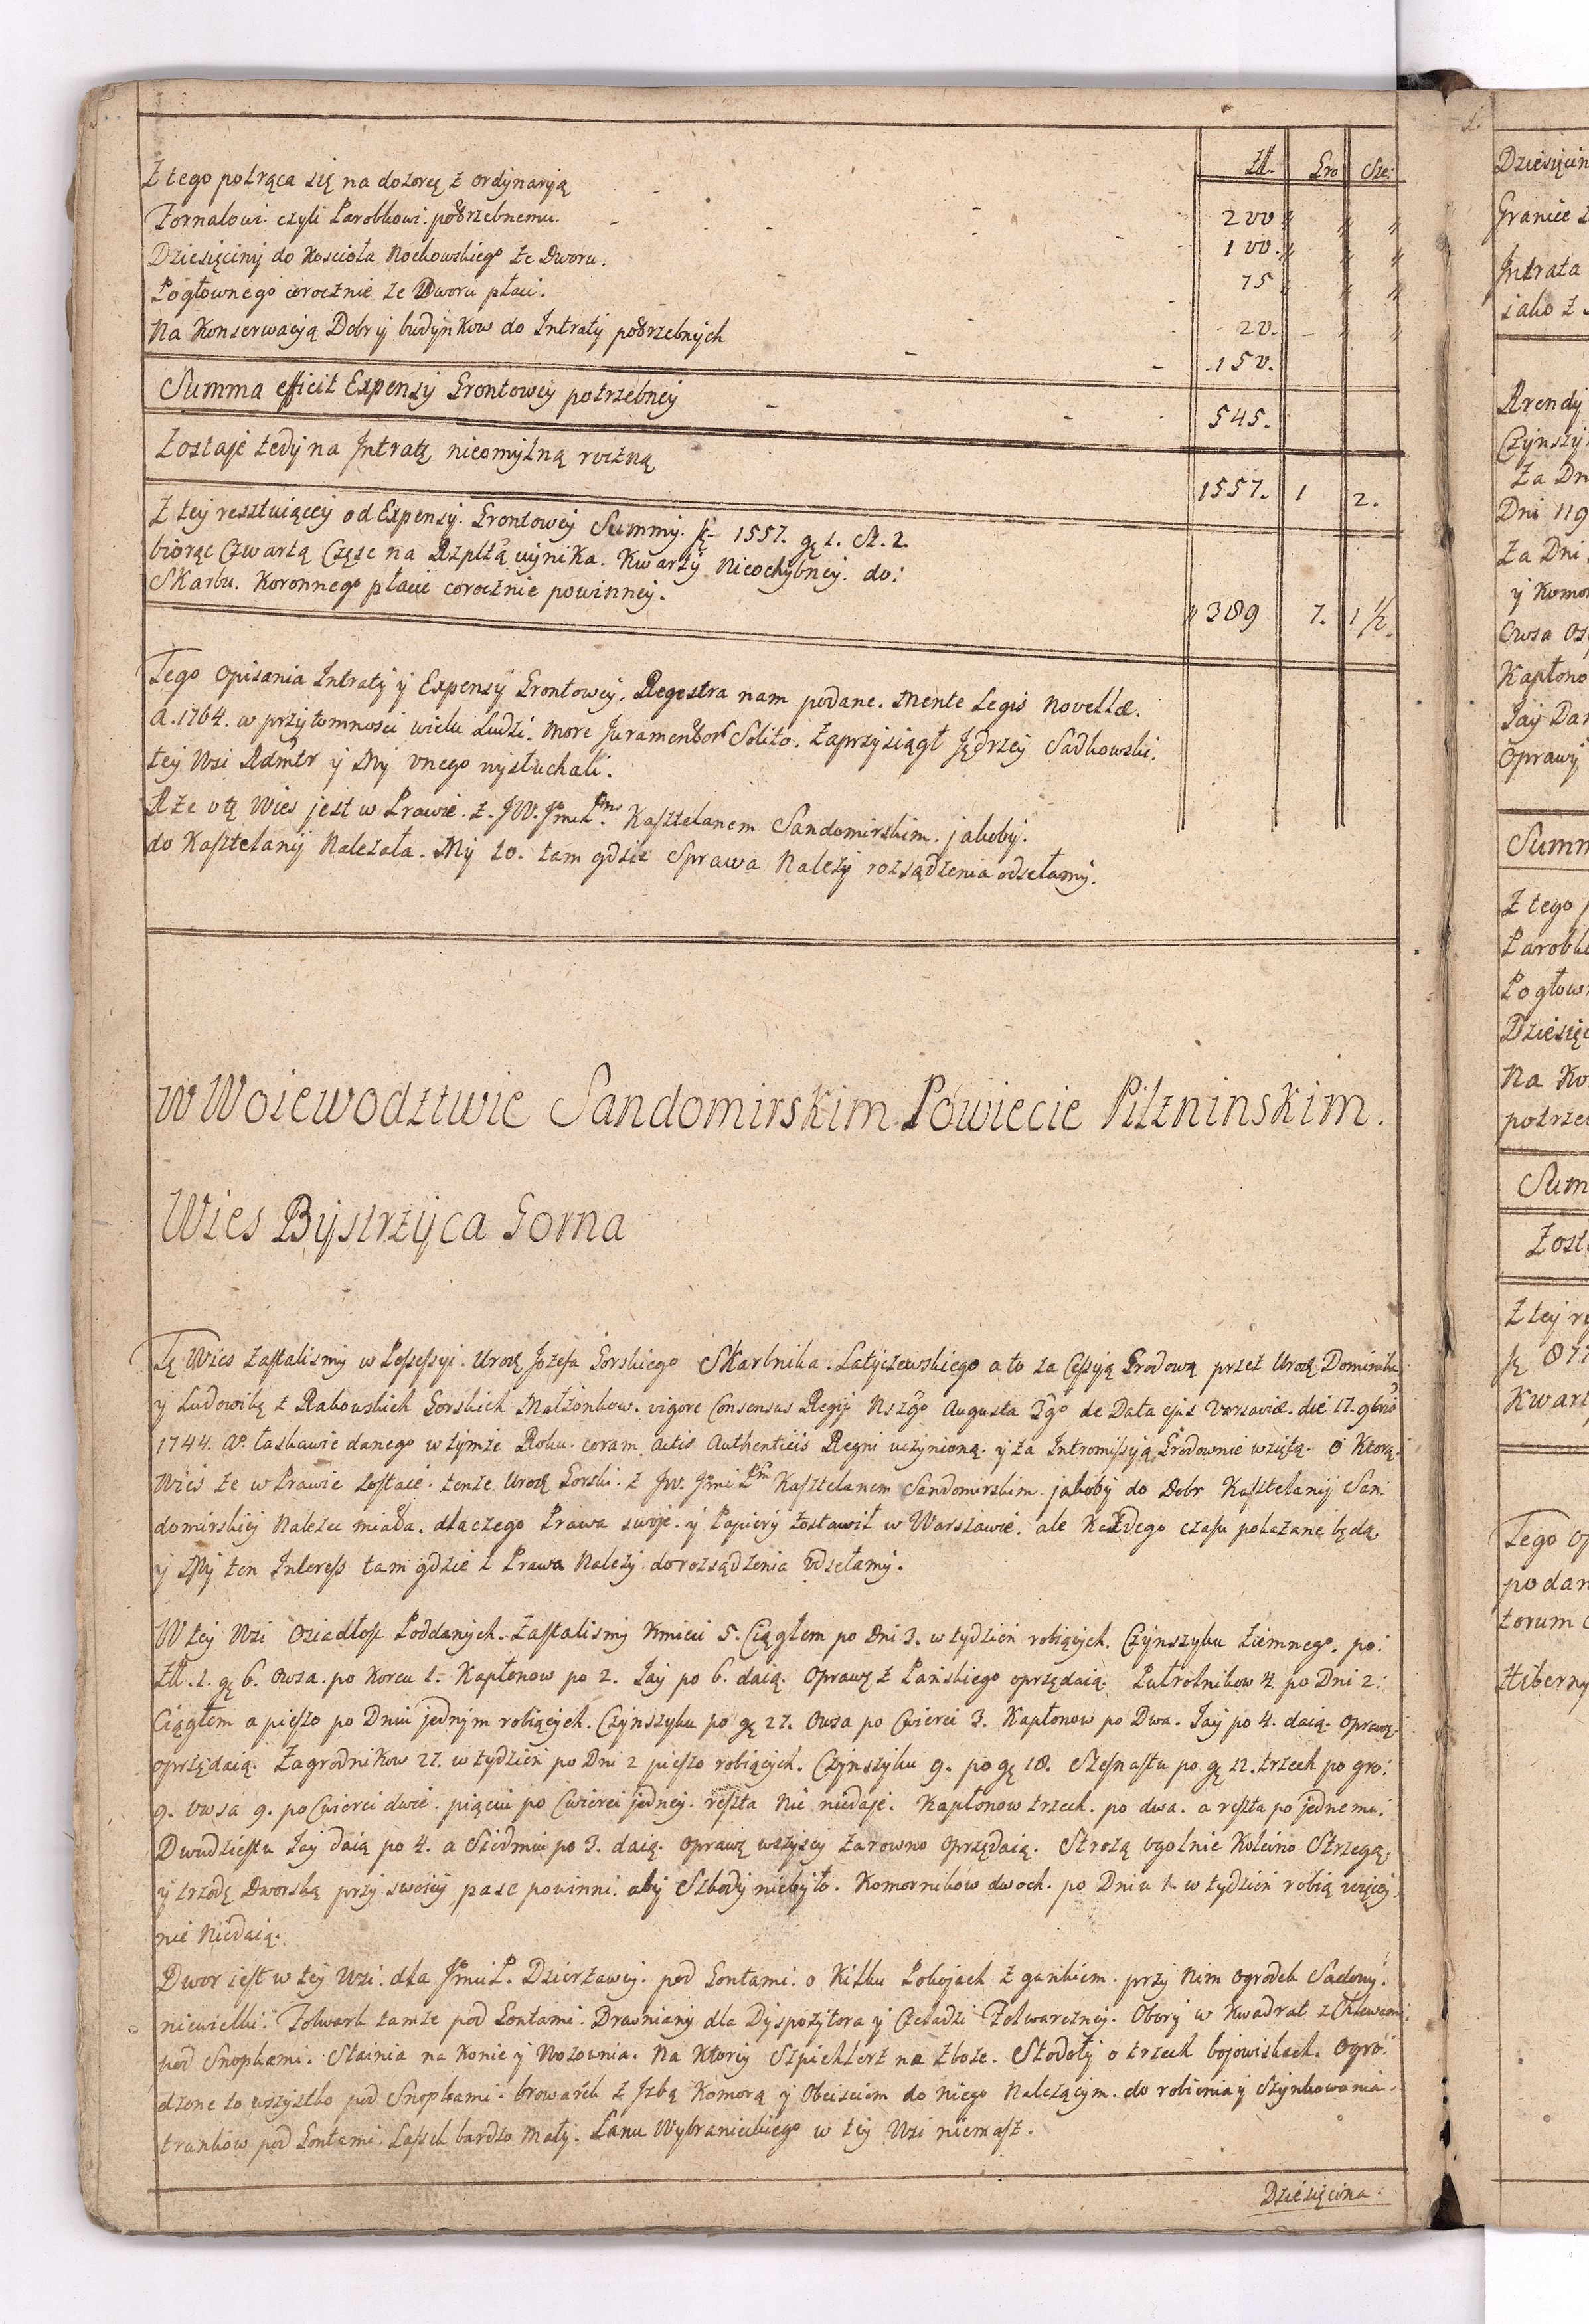 Zł. Gro Sze:
Z tego potrąca się na dozorcę z ordynaryą - - - 200 " "
Fornalowi czyli Parobkowi potrzebnemu. - - - 100. " "
Dziesięciny do Kościoła Nockowskiego ze Dworu. - - 75 " "
Pogłownego corocznie ze Dworu płaci. - - 20. " "
Na Konserwacyą Dobr y budynkow do Intraty potrzebnych - - 150.
Summa efficit Expensy Grontowey potrzebney - - 545.
Zostaje tedy na Intratę nieomylną roczną 1557. 1 2.
Z tey resztuiącey od Expensy. Grontowey Summy. fl. 1557. gr 1. Sz. 2.
biorąc Czwartą Część na Rzpltą wynika. Kwarty Nieochybney. do:
Skarbu. Koronnego płacić corocznie powinney. " 389 7. 1 1/2.
Tego Opisania Intraty y Expensy Grontowey. Regestra nam podane. Mente Legis Novellæ.
A. 1764. w przytomnosci wielu Ludzi. more Juramentor Solito. Zaprzysiągł Jędrzey Sadkowski.
tey Wsi Admtr y My onego wysłuchali.
A że o tę Wies jest w Prawie. z. JW. Jmć Pm Kasztelanem Sandomirskim. jakoby.
do Kasztelanij Należała. My to. tam gdzie Sprawa Należy rozsądzenia odsełamy.
w Woiewodztwie Sandomirskim Powiecie Pilzninskim.
Wies Bystrzyca Gorna
Tę Wies zastalismy w Possessyi. Urodz Jozefa Gorskiego Skarbnika. Latyczewskiego a to za Cessyą Grodową przez Urodz Dominika
y Ludowikę z Rakowskich Gorskich Małżonkow. vigore Consensus Regij Nszgo Augusta 3go de Data ejus Varsaviæ. die 17. 9bris
1744. Ao. łaskawie danego w tymże Roku. coram actis Authenticis Regni uczynioną. y za Intromissyą Grodownie wziętą. o Ktorą.
Wieś że w Prawie zostaie. tenże Urodz Gorski. z JW. Jmci Pm Kasztelanem Sandomirskim jakoby do Dobr Kasztelanij San:
domirskiej Należeć miała. dlaczego Prawa swoje. y Papiery zostawił w Warszawie. ale Każdego czasu pokazane będą.
y My ten Interess tam gdzie z Prawa Należy do rozsądzenia odsełamy.
W tey Wsi Osiadłosć Poddanych. Zastalismy Kmieci 5. Ciągłem po Dni 3. w tydzień robiących. Czynszyku Ziemnego. po:
Zł. 1. gr 6. Owsa. po Korcu 1. Kapłonow po 2. Jay po 6. daią. Oprawę z Pańskiego oprzędaią. Pułrolnikow 4. po Dni 2:
Ciągłem a pieszo po Dniu jednym robiących. Czynszyku po gr 27. Owsa po Cwierci 3. Kapłonow po Dwa. Jay po 4. daią. oprawę.
oprzędaią. Zagrodnikow 27. w tydzień po Dni 2 pieszo robiących. Czynszyku 9. po gr 18. Szesnastu po gr 12. trzech po gro:
9. owsa 9. po Cwierci dwie. pięciu po Cwierci jedney. reszta nic niedaje. Kapłonow trzech. po dwa. a reszta po jednemu.
Dwudziestu Jay daią po 4. a Siedmiu po 3. daią. oprawę wszyscy zarowno oprzędaią. Strożą ogolnie Koleino Strzegą,
y trzodę Dworską przy swoiey pasc powinni. aby Szkody niebyło. Komornikow dwoch. po Dniu 1. w tydzień robią więcey.
nic Niedaią.
Dwor jest w tey Wsi. dla JmciP. Dzierżawcy. pod Gontami. o Kilku Pokojach z gankiem. przy Nim ogrodek Sadowy.
niewielki. Folwark tamże pod Gontami. Drewniany dla Dyspozytora y Czeladzi Folwarczney. Obory w Kwadrat z Chlewami
pod Snopkami. Stainia na Konie y Wozownia. Na Ktorey Szpichlerz na zboże. Stodoły o trzech bojowiskach. Ogro:
dzone to wszystko pod Snopkami. browarek z Izbą Komorą y Obeisciem do niego Należącym. do robienia y Szynkowania.
trunkow pod Gontami. Lasek bardzo Mały. Łanu Wybranieckiego w tey Wsi niemasz.
Dziesięcina.